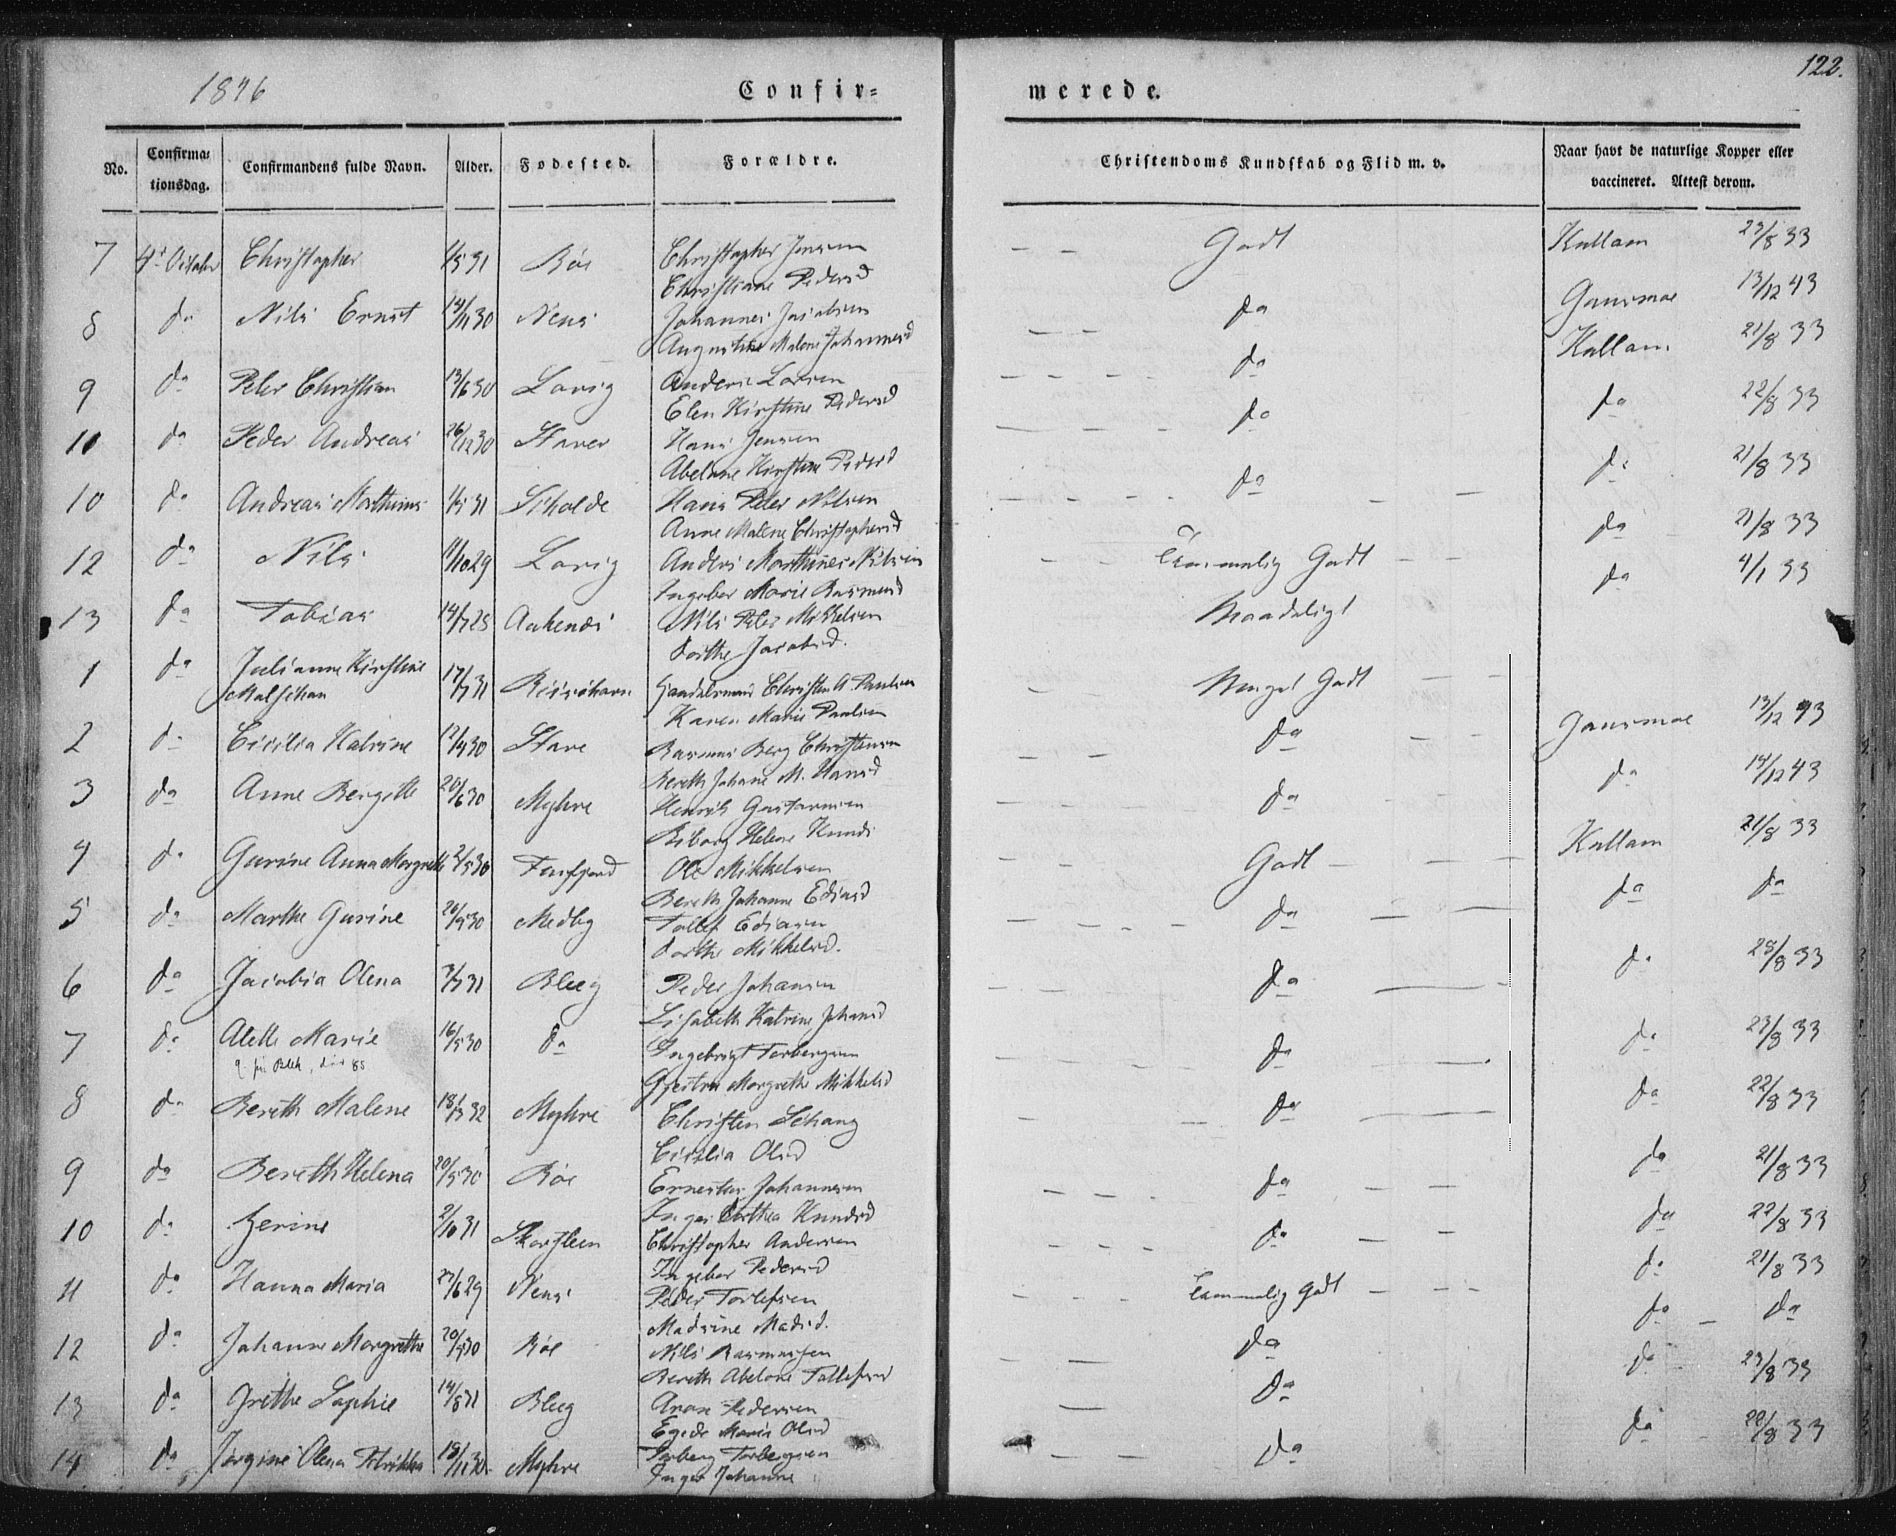 1846 Confir- merede. 122.
No. Confirma- tionsdag. Confirmandens fulde Navn. Alder. Fødested. Forældre. Christendoms Kundskab og Flid m. v. Naar havt de naturlige Kopper eller vaccineret. Attest derom.
7 4de October Christopher 1/5 31 Røe Christopher Jensen Godt Kullam 23/8 33
Christiane Pedersd
8 do Nils Ernst 14/11 30 Nens Johannes Jacobsen do Gausmoe 13/12 43
Augustine Malene Johannesd
9 do Peter Christian 13/6 30 Lovig Anders Larsen do Kullam 21/8 33
Elen Kirstine Pedersd
11 do Peder Andreas 26/12 30 Staver Hans Jensen do do 22/8 33
Abelone Kirstine Pedersd
10 do Andreas Morthinus 1/5 31 Skolde Hans Peter Nilsen do do 21/8 33
Anne Malene Christophersd
12 do Nils 11/10 29 Lovig Anders Morthines Nilsen Temmelig Godt do 21/8 33
Ingebor Marie Rasmusd
13 do Tobias 14/7 28 Aakenæs Nils Peter Mikkelsen Maadeligt do 4/1 33
Dorthe Jacobsd.
1 do Julianne Kirstine 17/7 31 Risøehavn Handelsmand Christen A. Paulsen Meget Godt
Karen Marie Paulsen
2 do Cicilia Katrine 12/9 30 Stave Rasmus Berg Christensen do Gausmoe 13/12 43
Bereth Johane M. Hansd
3 do Anne Bergitte 20/6 30 Myhre Henrik Gustavsen do do 14/12 43
Helene Knuds
4 do Gurine Anna Margrethe 2/5 30 Forfjord Ole Mikkelsen Godt Kullam 21/8 33
Bereth Johanne Ediasd
5 do Marthe Gurine 20/9 30 Medby Tollef Ediasen do do do
Dorthe Mikkelsd.
6 do Jacobia Olena 3/7 31 Bleg Peder Johansen do do 28/8 33
Lisabeth Katrine Johansd
7 do Aleth Marie 16/5 30 do Ingebrigt Torbergsen do do 23/8 33
Margrethe Mikkelsd
8 do Bereth Malene 18/7 32 Myhre Christen Schang do do 22/8 33
Cicilia Olsd
9 do Bereth Helena 20/5 30 Røe Ernestus Johannesen do do 21/8 33
Inger Dorthea Knudsd
10 do Gerine 2/10 31 Skogsteen Christopher Andersen do do 22/8 33
Ingebor Pedersd
11 do Hanna Maria 27/6 29 Nens Peder Torlefsen Temmelig godt do 21/8 33
Madsine Madsd.
12 do Johanne Margrethe 20/9 30 Røe Nils Rasmussen do do do
Bereth Abelone Tollefsd
13 do Grethe Sophie 14/8 31 Bleg Aron Pedersen do do 23/8 33
Egede Maria Olsd
14 do Jørgine Olena Fredrikka 18/11 30 Myhre Torberg Torbergsen do do 22/8 33
Inger Johanne